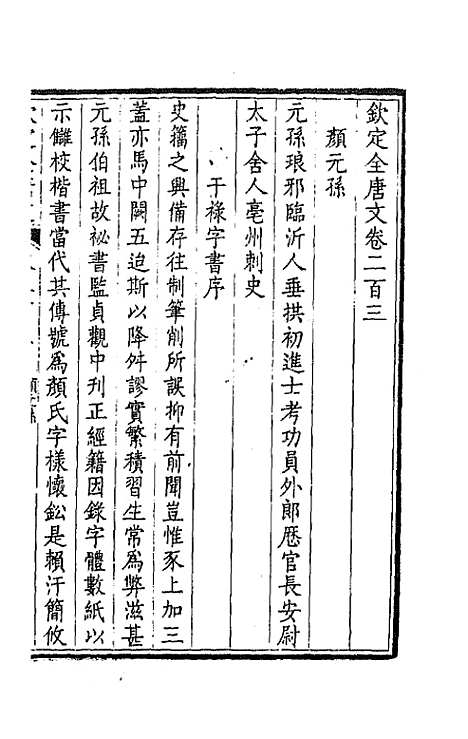 欽定全唐文卷二百三
顏元孫
元孫琅邪臨沂人垂拱初進士考功員外郎歷官長安尉
太子舍人亳州刺史
干祿字書序
史籀之興備存往制筆削所誤抑有前聞豈惟豕上加三
蓋亦馬中闕五迨斯以降舛謬實繁積習生常為弊滋甚
元孫伯祖故祕書監貞觀中刊正經籍因錄字體數紙以
示讎校楷書當代共傳號為顏氏字樣懷鉛是賴汗簡攸